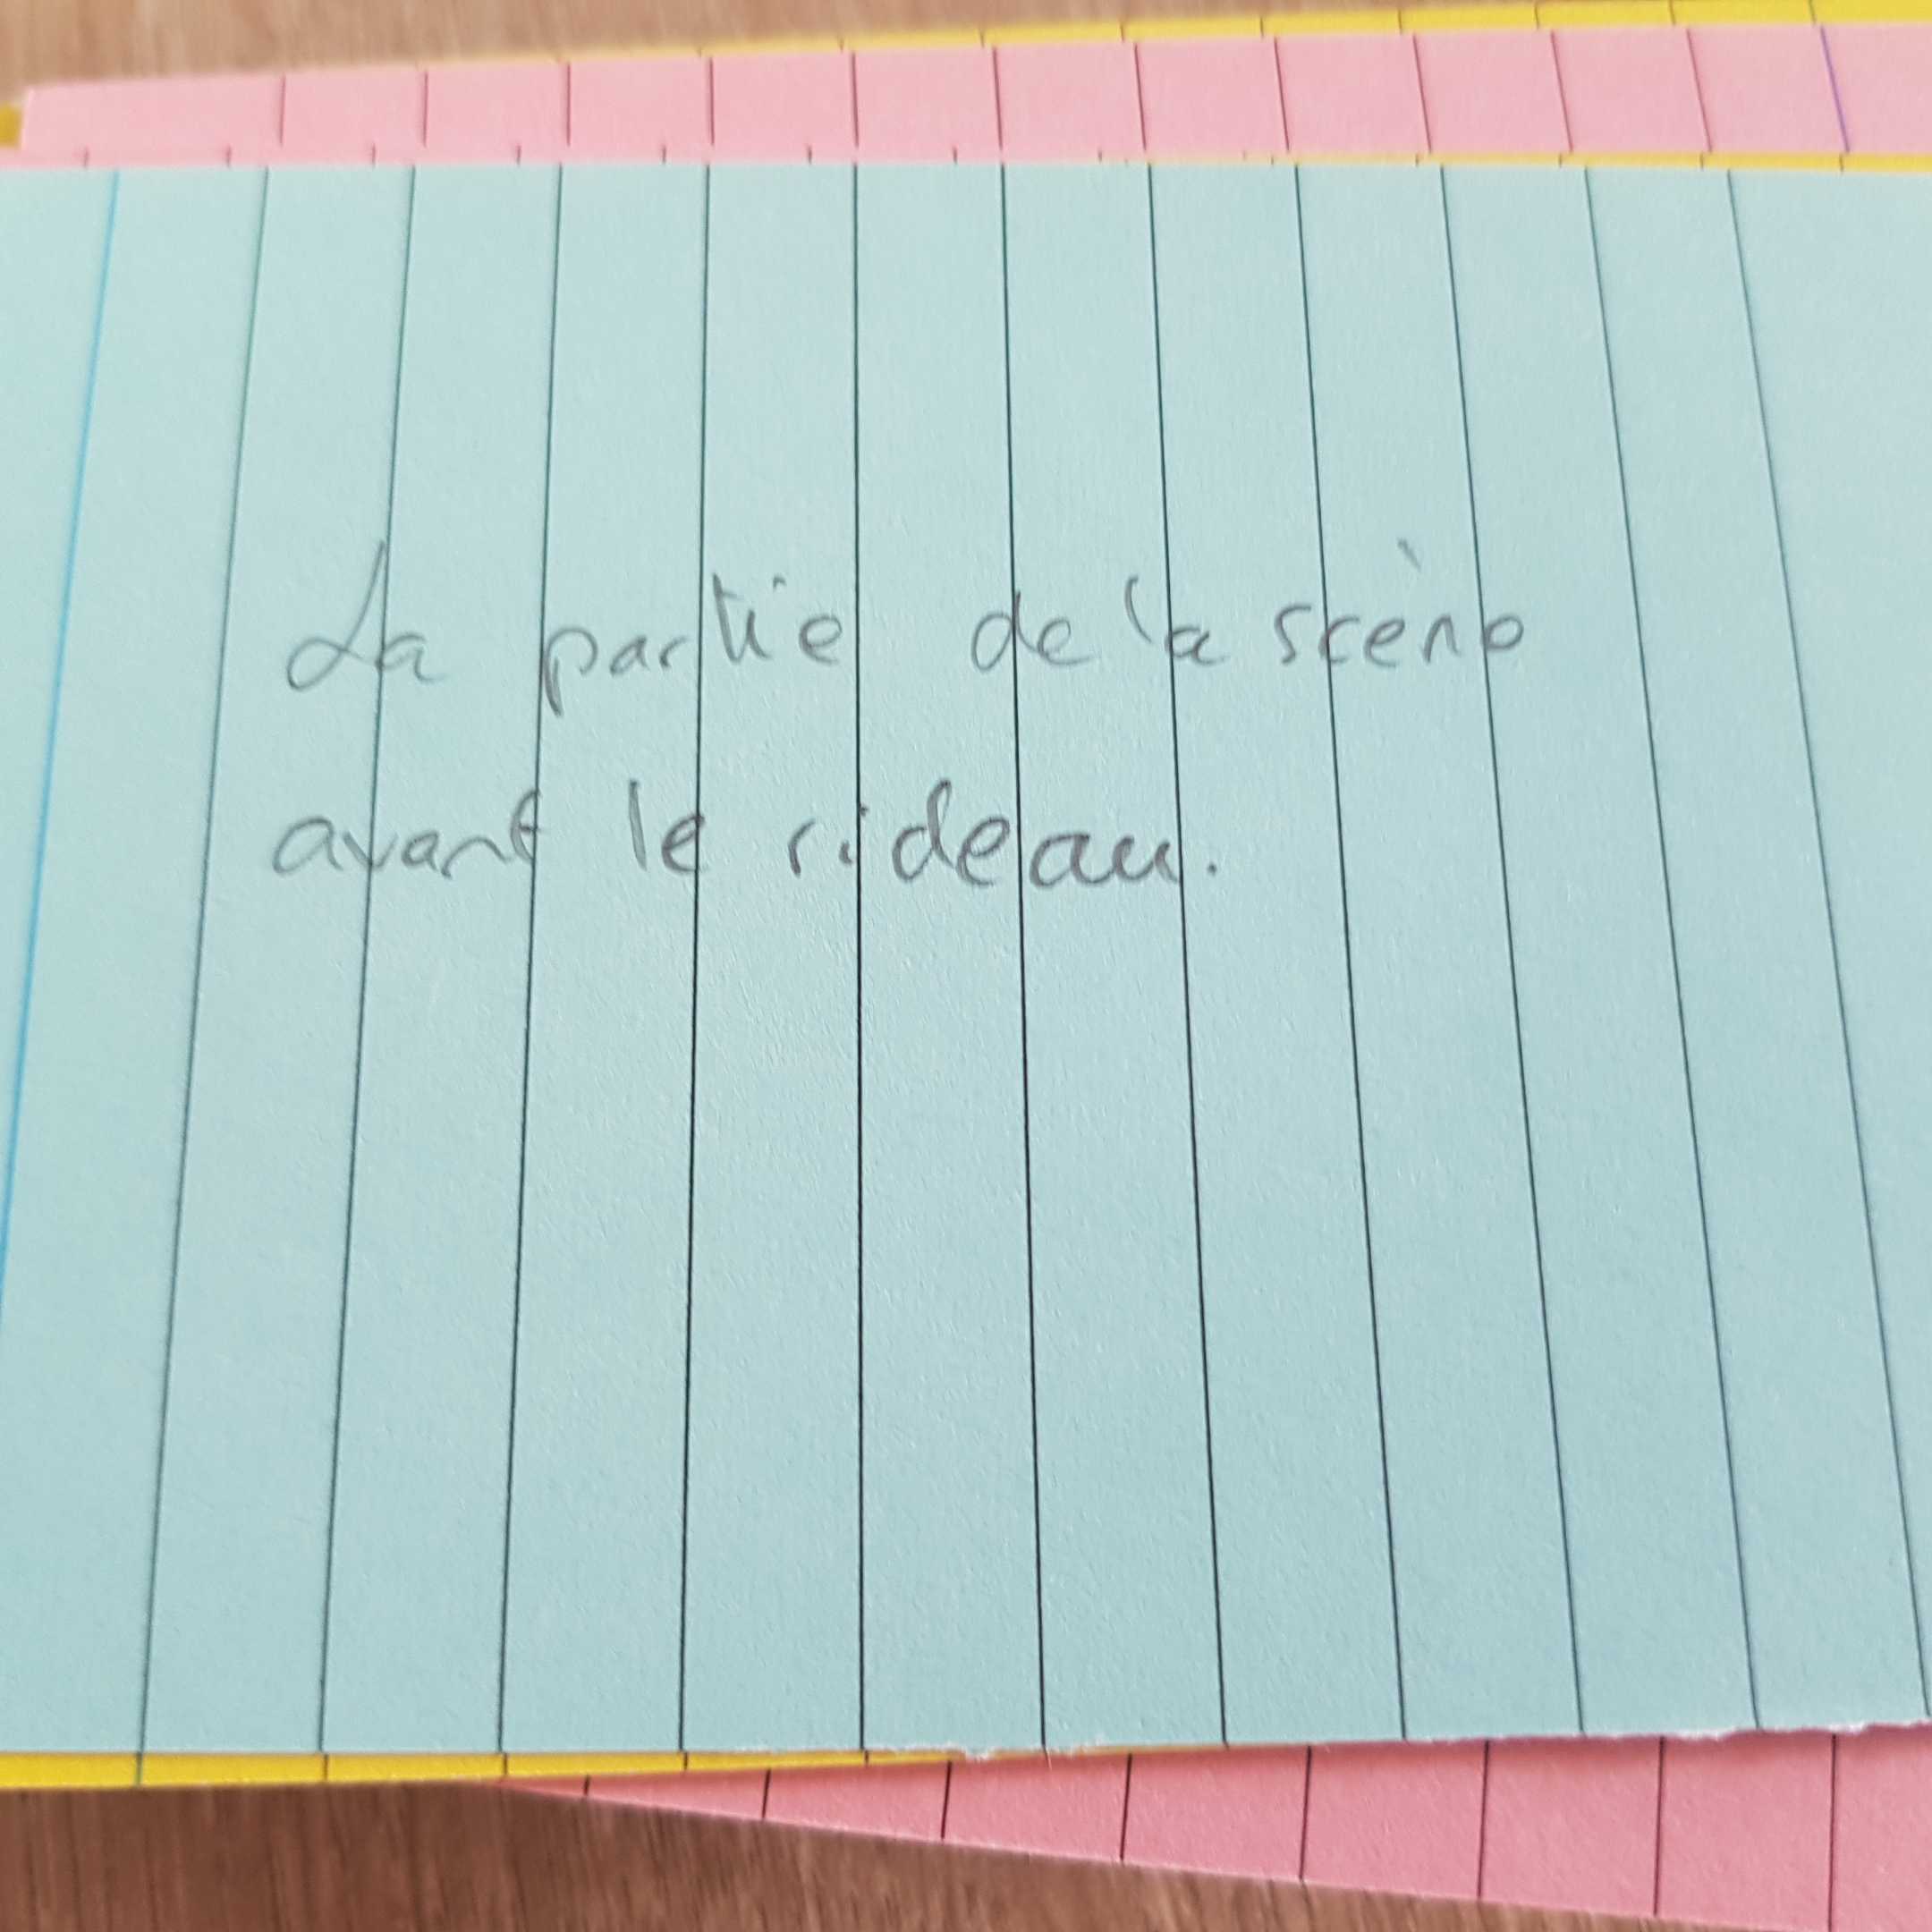 La partie de la scène
avant le rideau.